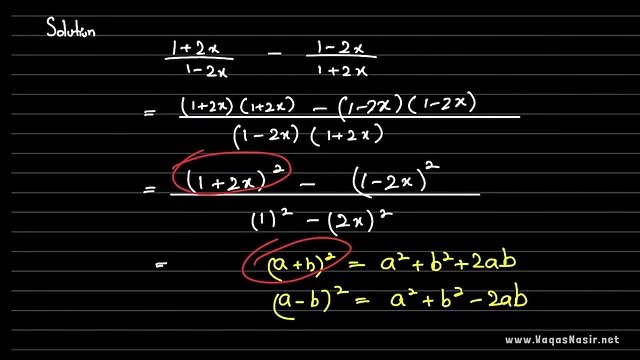 Solution
(1+2x)/(1-2x) - (1-2x)/(1+2x)
= ((1+2x)(1+2x) - (1-2x)(1-2x))/((1-2x)(1+2x))
= ((1+2x)² - (1-2x)²)/((1)² - (2x)²)
= (a+b)² = a² + b² + 2ab
(a-b)² = a² + b² - 2ab
www.WaqasNasir.net